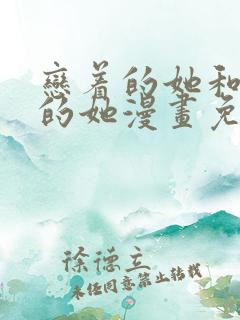 戀着的她和
的她漫畫免
徐德立
未经同意禁止转载